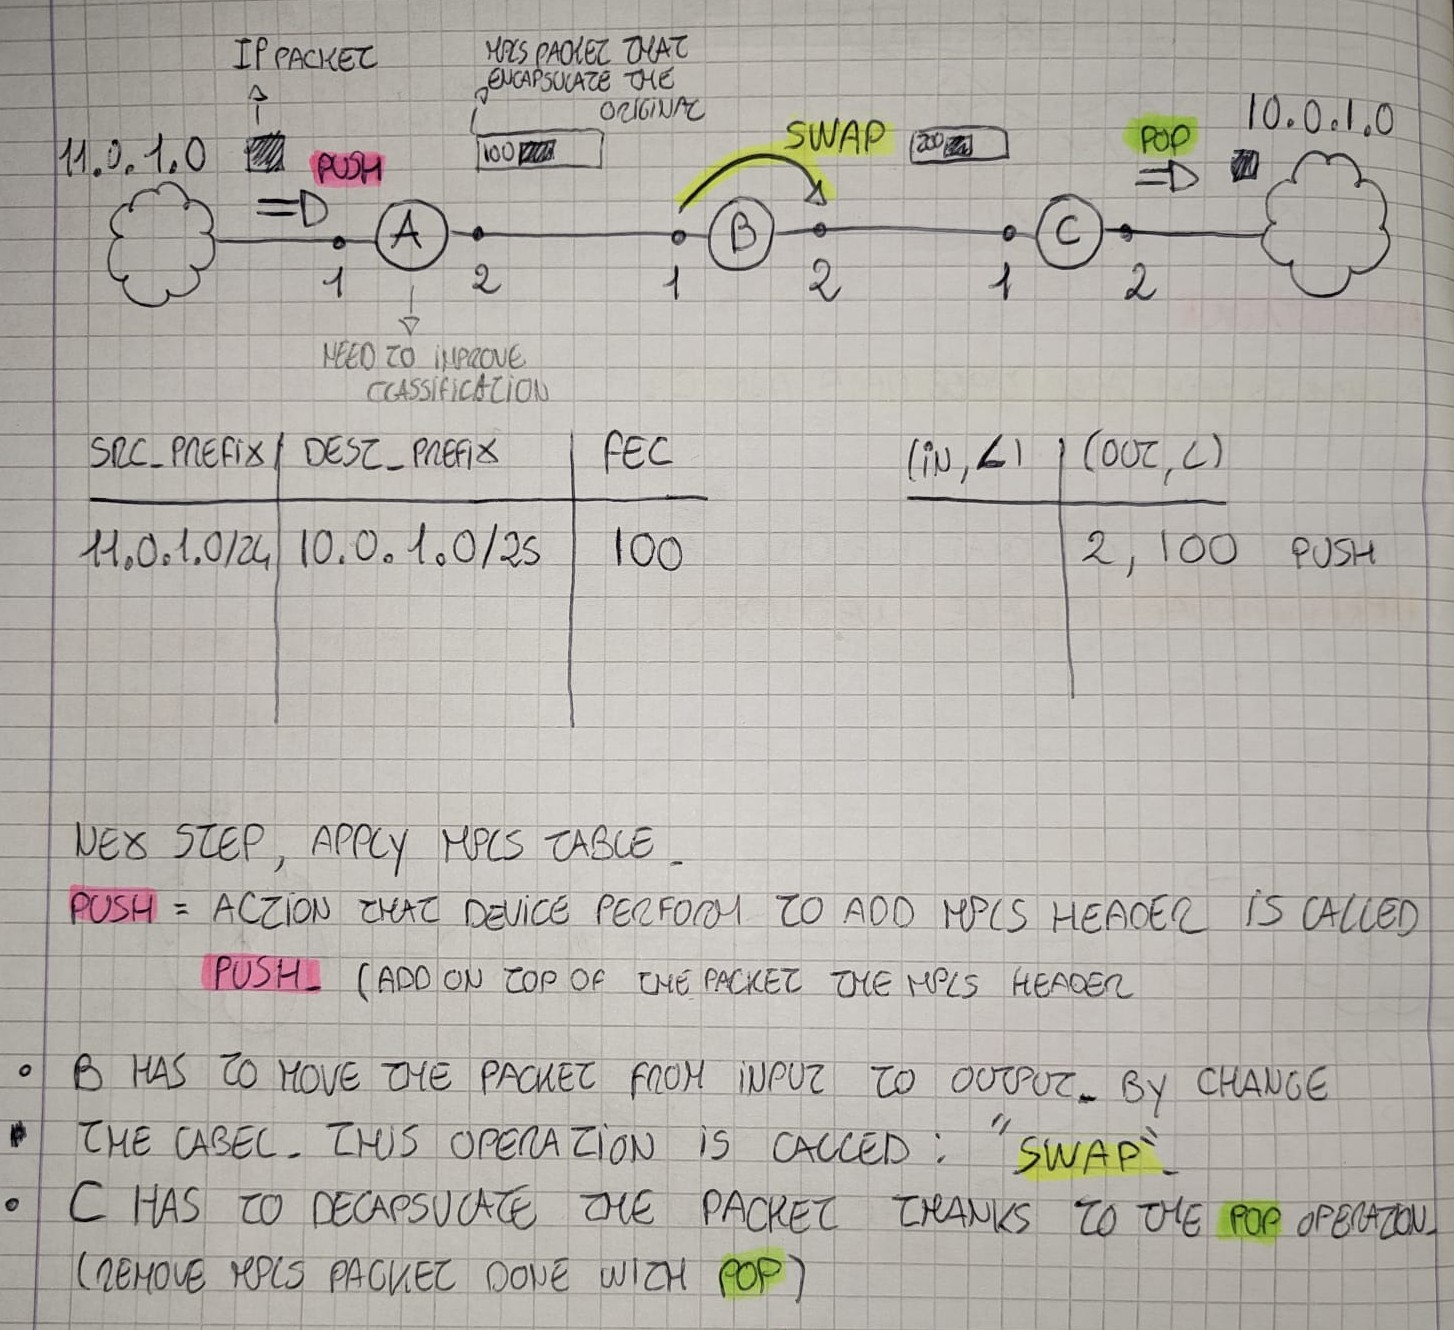 IP PACKET
MPLS PACKET THAT
ENCAPSULATE THE
ORIGINAL
11.0.1.0
PUSH
100
SWAP
200
POP
10.0.1.0
A
B
C
1
2
1
2
1
2
NEED TO IMPROVE
CLASSIFICATION
SRC_PREFIX DEST_PREFIX FEC
11.0.1.0/24 10.0.1.0/25 100
(IN, L) (OUT, L)
2, 100 PUSH
NEX STEP, APPLY MPLS TABLE_
PUSH = ACTION THAT DEVICE PERFORM TO ADD MPLS HEADER IS CALLED
PUSH_ (ADD ON TOP OF THE PACKET THE MPLS HEADER
B HAS TO MOVE THE PACKET FROM INPUT TO OUTPUT_ BY CHANGE
THE LABEL_ THIS OPERATION IS CALLED: "SWAP"_
C HAS TO DECAPSULATE THE PACKET THANKS TO THE POP OPERATION_
(REMOVE MPLS PACKET DONE WITH POP)